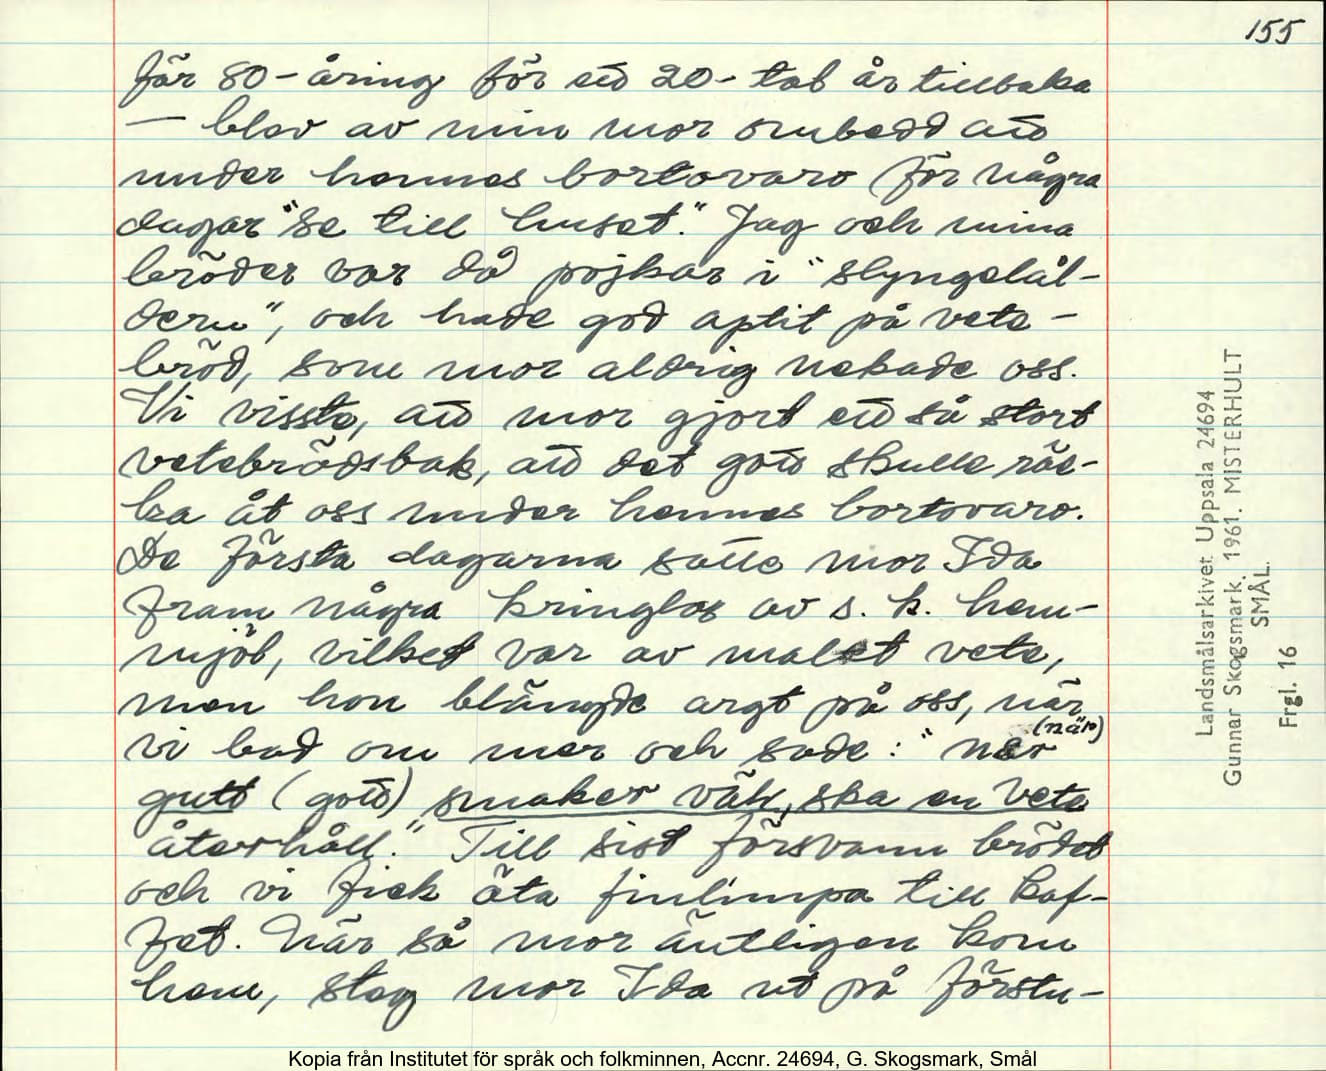 155
för 80-åring för ett 20-tal år tillbaka
— blev av min mor ombedd att
under hennes bortovaro för några
dagar "se till huset." Jag och mina
bröder var då pojkar i "slyngelål-
dern", och hade god aptit på vete-
bröd, som mor aldrig nekade oss.
Vi visste, att mor gjort ett så stort
vetebrödsbak, att det gott skulle räc-
ka åt oss under hennes bortovaro.
De första dagarna satte mor Ida
fram några kringlor av s. k. hem-
mjöl, vilket var av malet vete,
men hon blängde argt på oss, när
vi bad om mer och sade: "Nær (när)
gutt (gott) smaker väh, ska en veta
återhåll." Till sist försvann brödet
och vi fick äta finlimpa till kaf-
fet. När så mor äntligen kom
hem, steg mor Ida ut på förstu-
Landsmålsarkivet Uppsala 24694
Gunnar Skogsmark. 1961. MISTERHULT
SMÅL.
Frgl. 16
Kopia från Institutet för språk och folkminnen, Accnr. 24694, G. Skogsmark, Smål